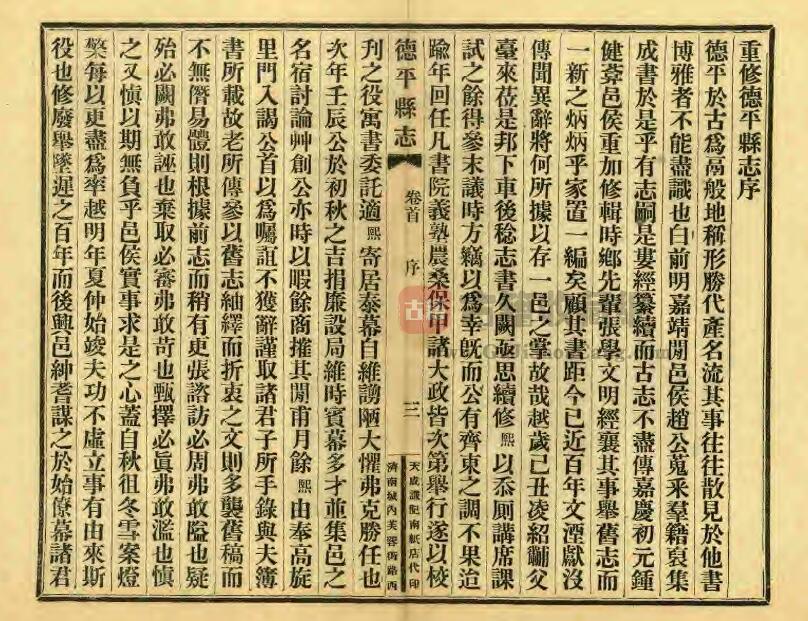 重修德平縣志序
德平於古爲鬲般地稱形勝代產名流其事往往散見於他書
博雅者不能盡識也自前明嘉靖閒邑侯趙公蒐釆羣籍裒集
成書於是乎有志嗣是婁經纂續而古志不盡傳嘉慶初元鍾
健菴邑侯重加修輯時鄉先輩張學文明經襄其事舉舊志而
一新之炳炳乎家置一編矣顧其書距今已近百年文湮獻沒
傳聞異辭將何所據以存一邑之掌故哉越歲己丑凌紹黼父
臺來莅是邦下車後稔志書久闕亟思續修熙以忝厠講席課
試之餘得參末議時方竊以爲幸旣而公有齊東之調不果迨
踰年回任凡書院義塾農桑保甲諸大政皆次第舉行遂以校
德平縣志
卷首
序
三
天成議記南紙店代印
濟南城內芙蓉街路西
刋之役寓書委託適熙寄居泰幕自維謭陋大懼弗克勝任也
次年壬辰公於初秋之吉捐廉設局維時賓幕多才並集邑之
名宿討論艸創公亦時以暇餘商搉其閒甫月餘熙由奉高旋
里門入謁公首以爲囑誼不獲辭謹取諸君子所手錄與夫簿
書所載故老所傳參以舊志紬繹而折衷之文則多襲舊稿而
不無僭易體則根據前志而稍有更張諮訪必周弗敢隘也疑
殆必闕弗敢誣也棄取必審弗敢苛也甄擇必眞弗敢濫也愼
之又愼以期無負乎邑侯實事求是之心蓋自秋徂冬雪案燈
檠每以更盡爲率越明年夏仲始竣夫功不虛立事有由來斯
役也修廢舉墜遲之百年而後興邑紳耆謀之於始僚幕諸君